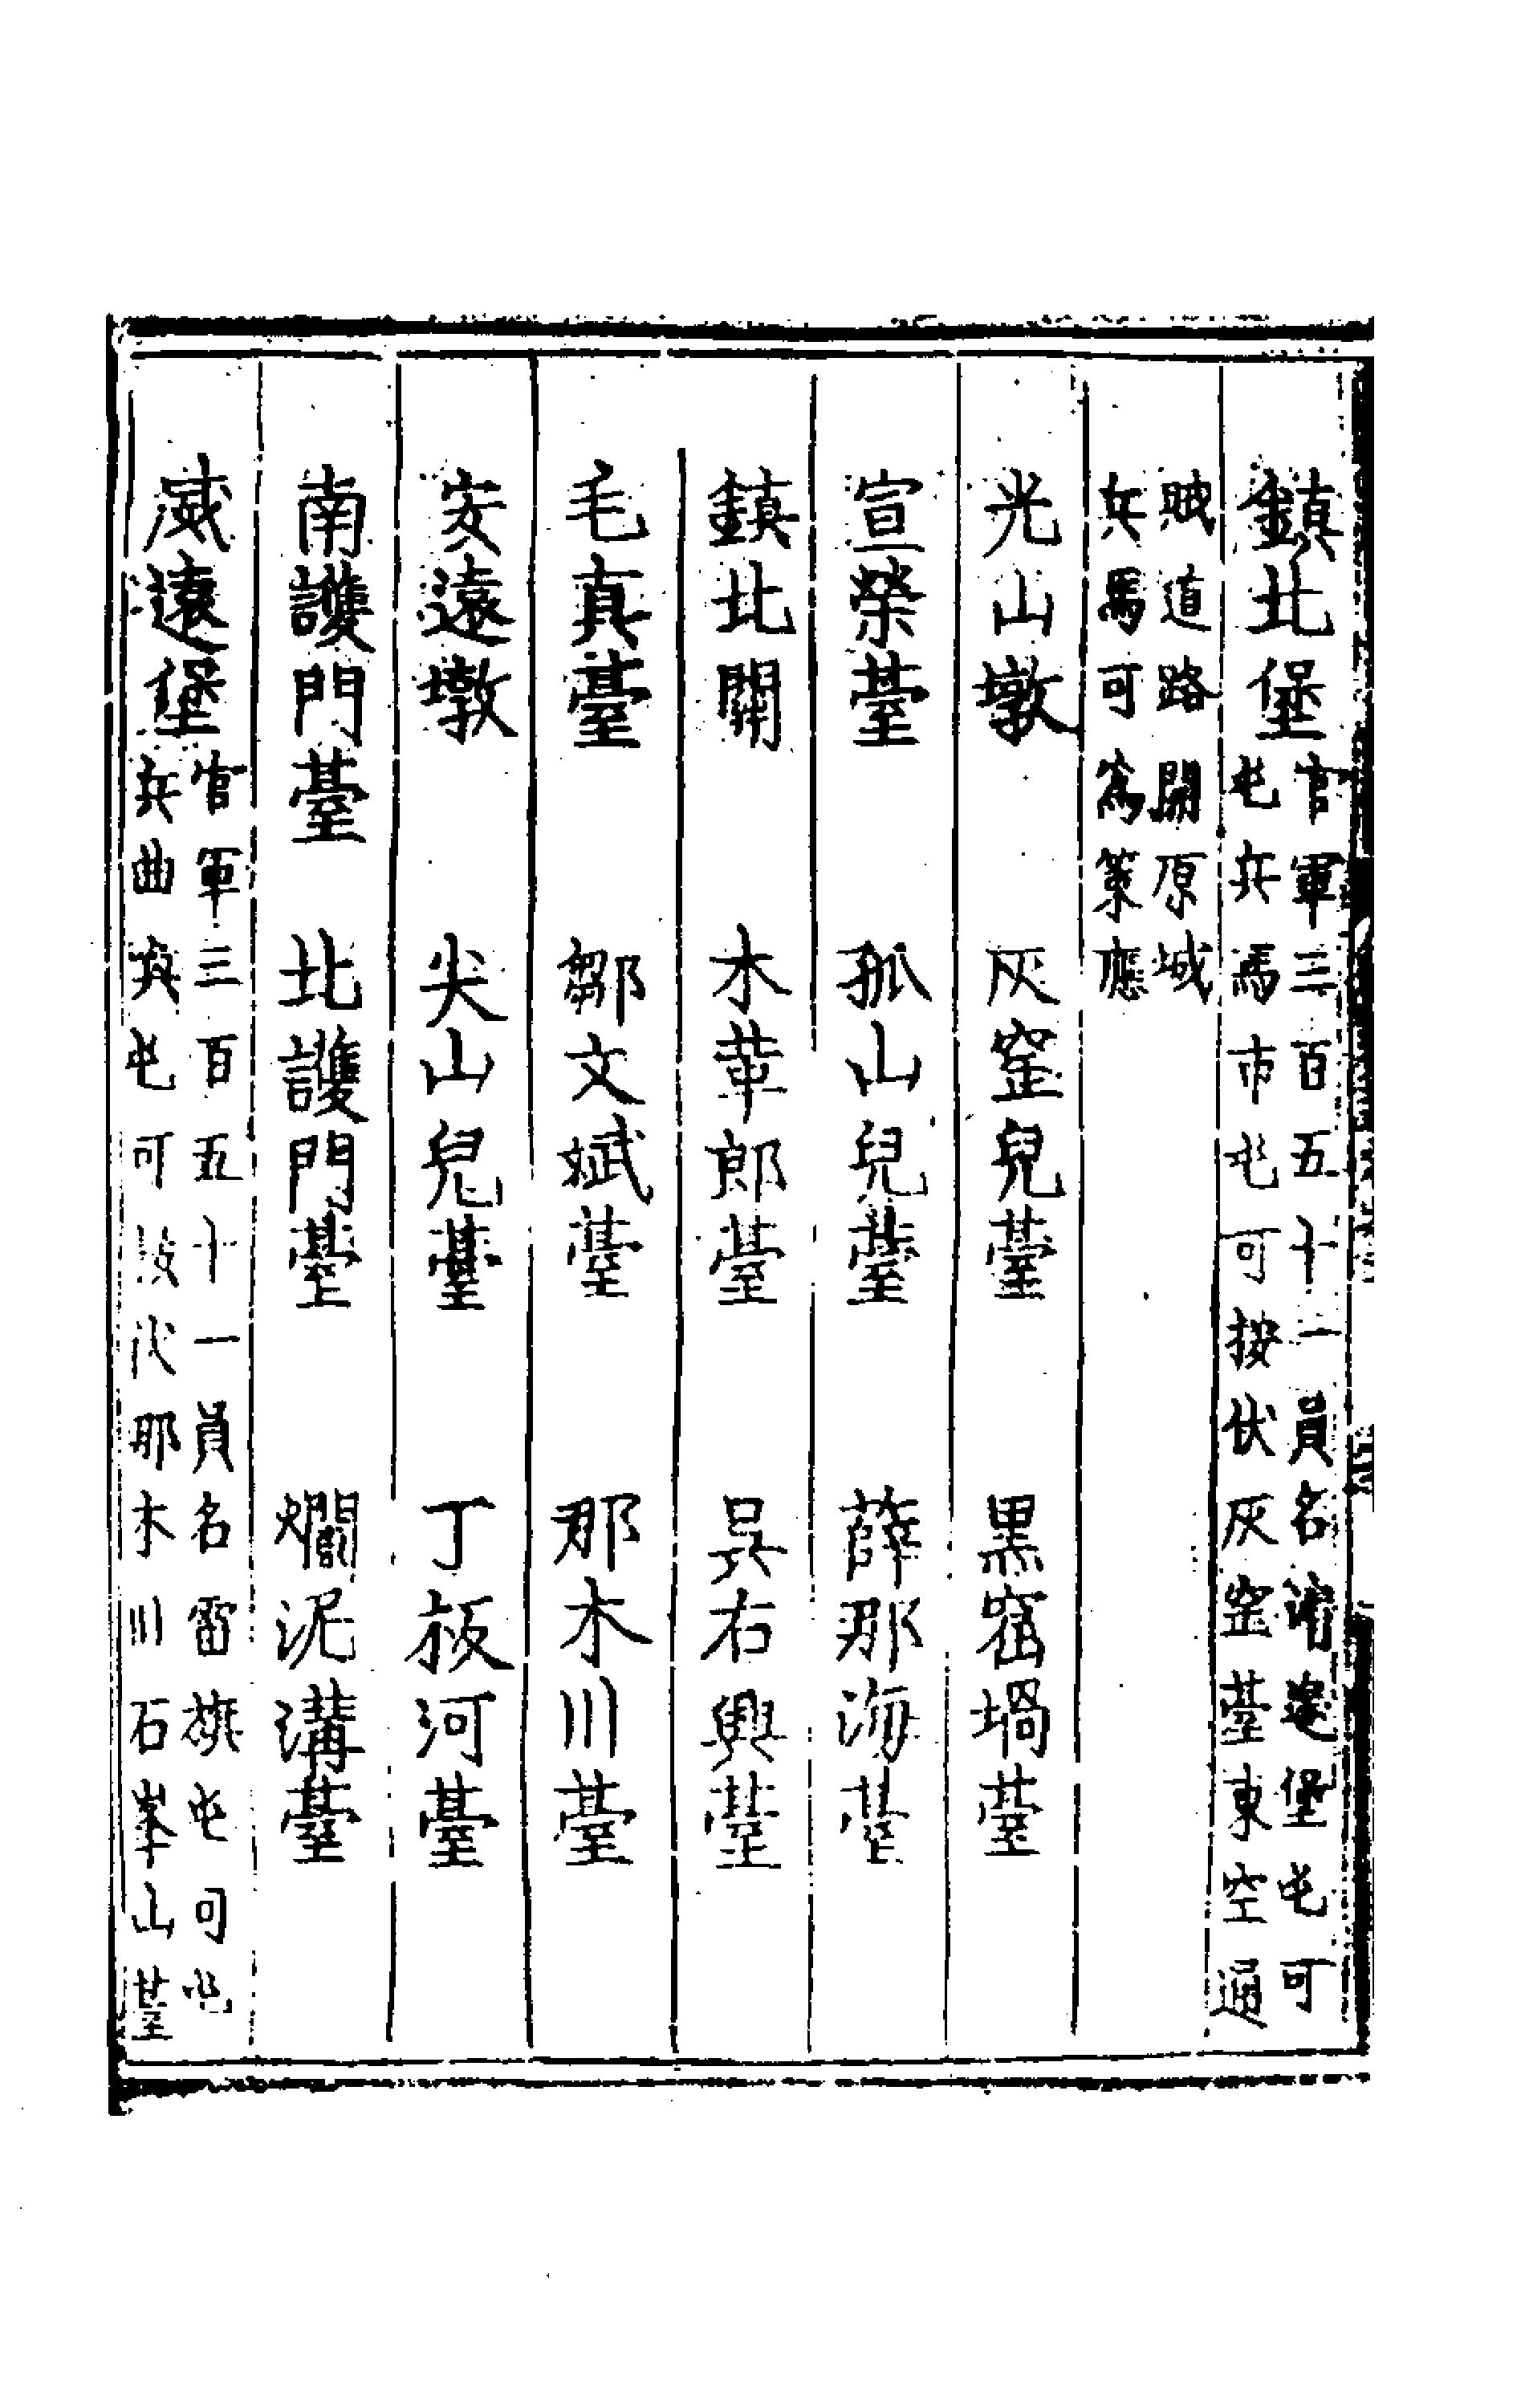 鎮北堡官軍三百五十一員名遼堡屯可
屯兵馬市屯可按伏灰窑臺東空通
賊道路開原城
兵馬可為策應
光山墩 灰窑兒臺 黑窑堝臺
宣榮臺 孤山兒臺 薛那海臺
鎮北關 木革郎臺 吳右興臺
毛真臺 鄒文斌臺 那木川臺
安遠墩 尖山兒臺 丁板河臺
南護門臺 北護門臺 爛泥溝臺
威遠堡官軍三百五十一員名雷旗屯可屯
兵曲屯可伏那木川石峯山臺